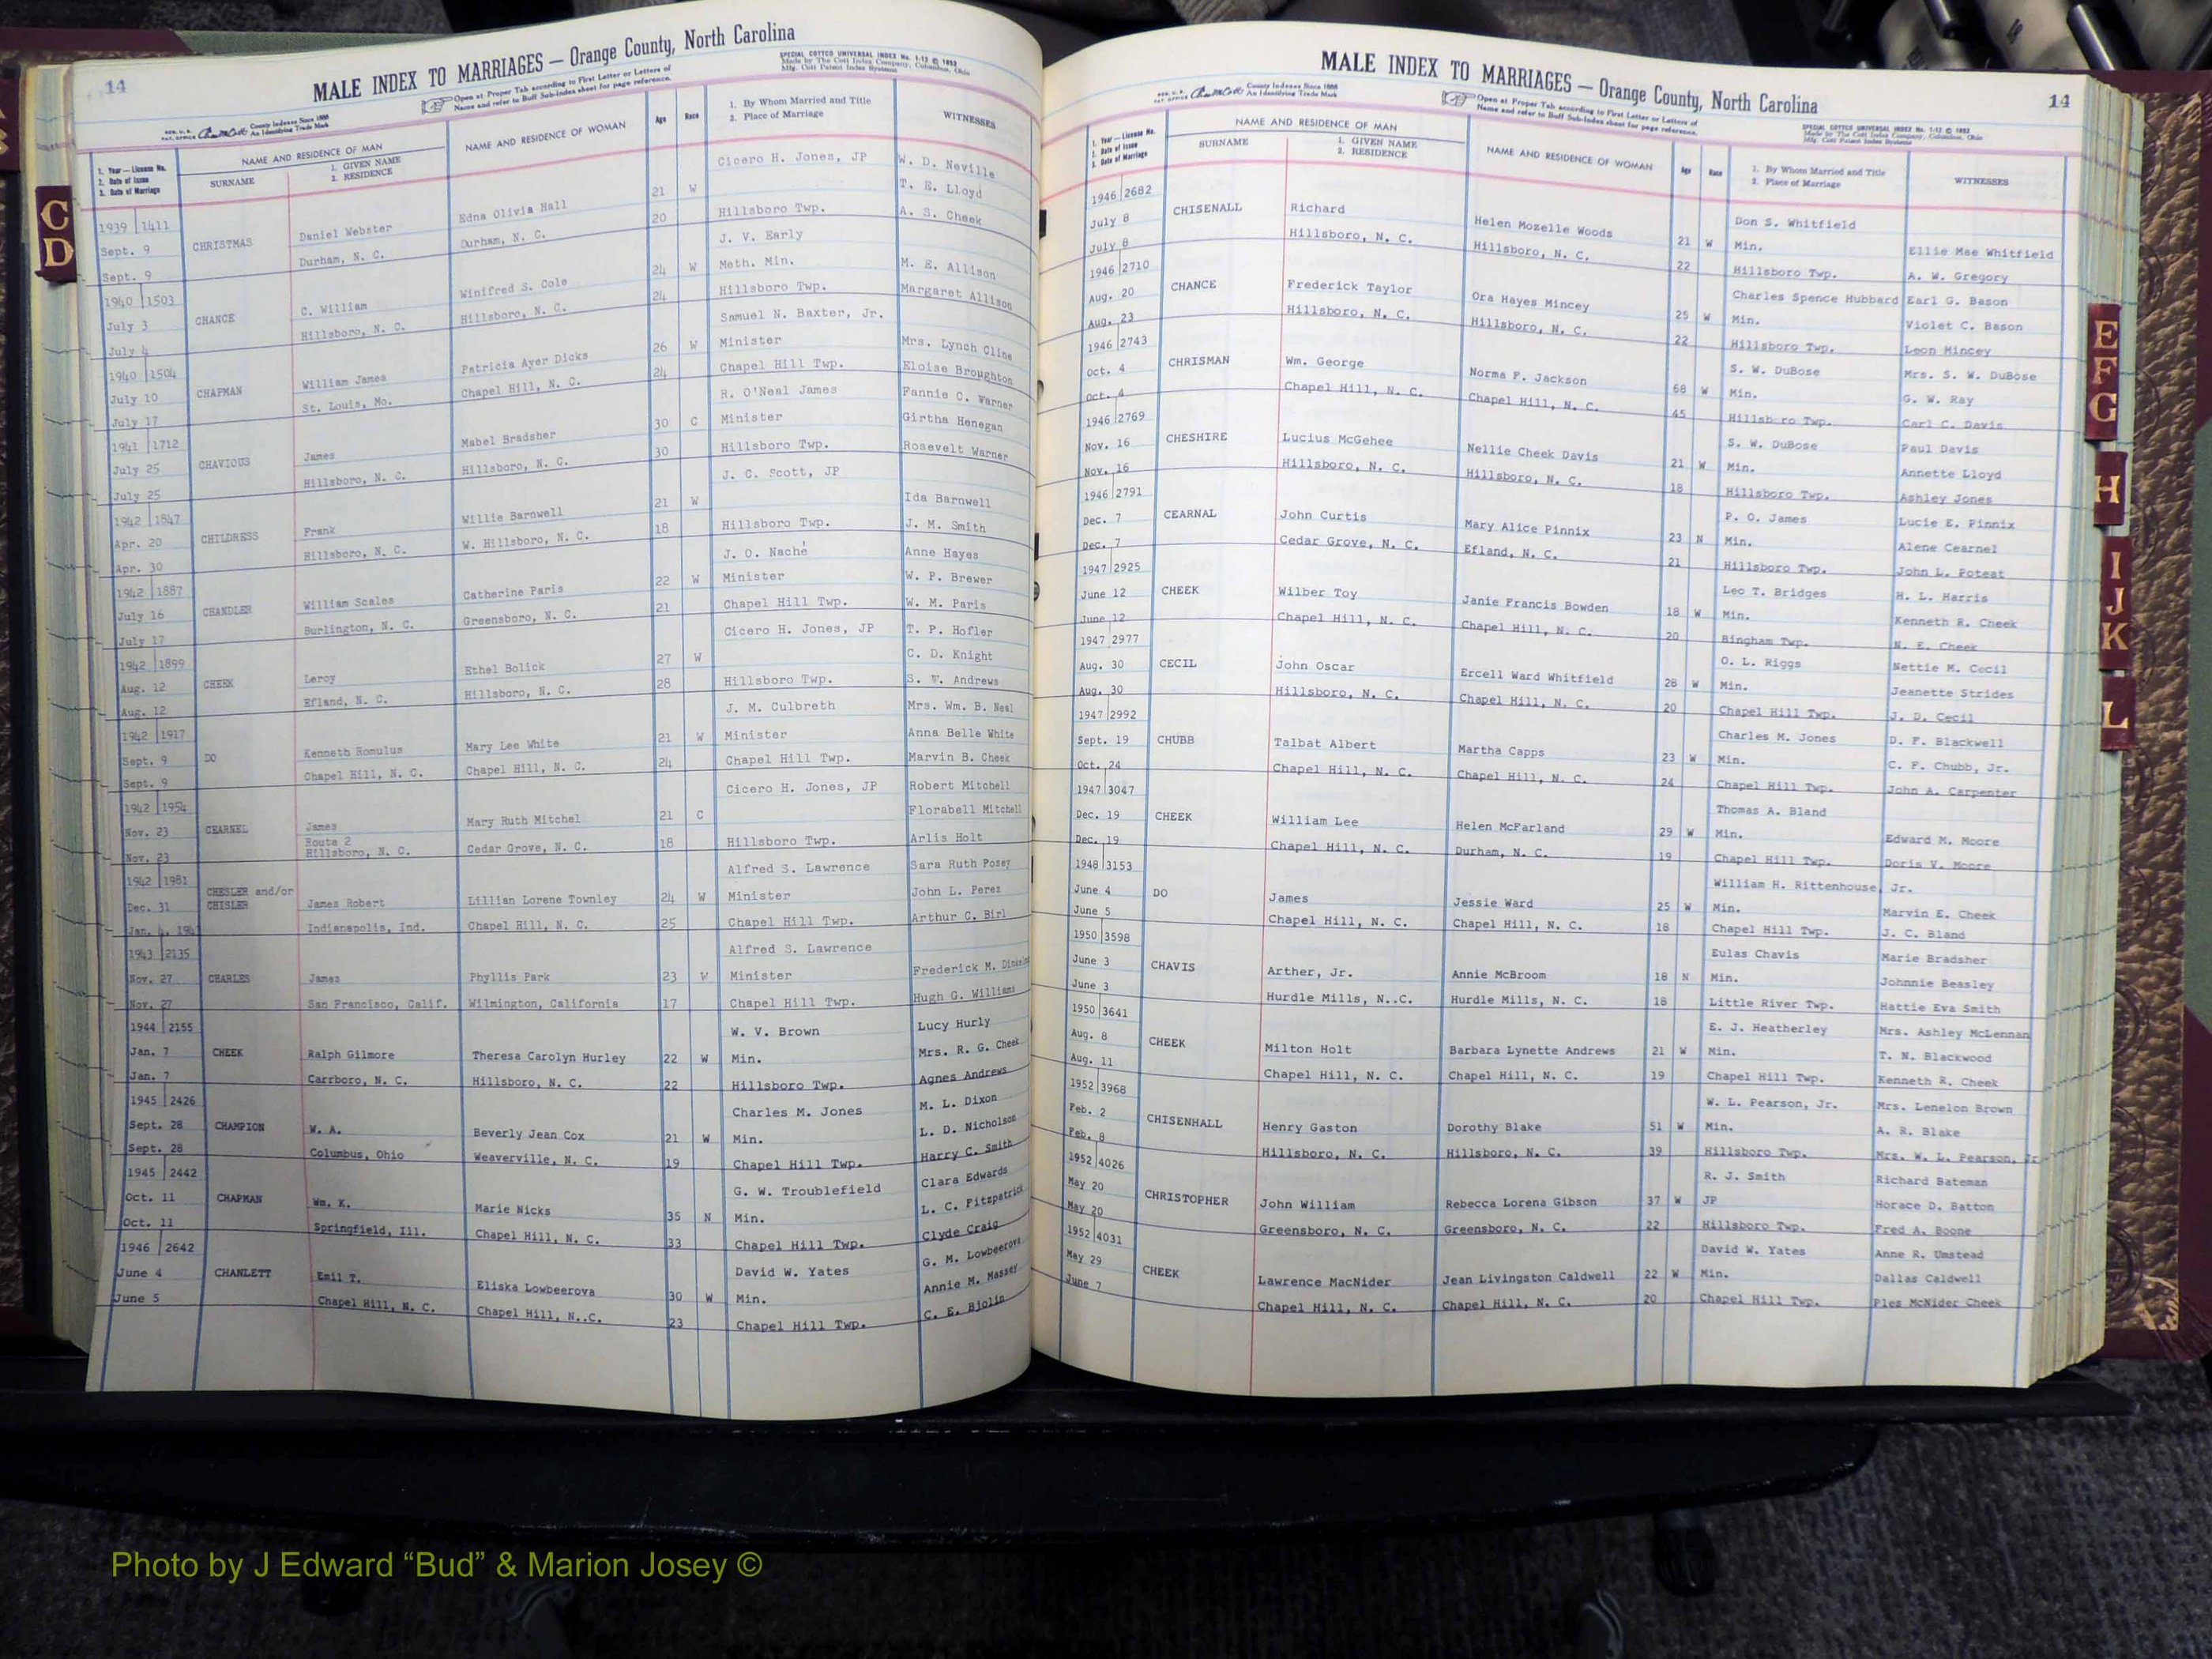 14
MALE INDEX TO MARRIAGES — Orange County, North Carolina
SPECIAL COTTCO UNIVERSAL INDEX No. 1-12 © 1953
Made by The Cott Index Company, Columbus, Ohio
Mfg. Cott Patent Index Systems
Open at Proper Tab according to First Letter or Letters of
Name and refer to Buff Sub-Index sheet for page reference.
County Indexes Since 1888
An Identifying Trade Mark
1. Year — License No.
2. Date of Issue
3. Date of Marriage
NAME AND RESIDENCE OF MAN
SURNAME
1. GIVEN NAME
2. RESIDENCE
NAME AND RESIDENCE OF WOMAN
Age
Race
1. By Whom Married and Title
2. Place of Marriage
WITNESSES
1939 1411 Cicero H. Jones, JP W. D. Neville
Sept. 9 CHRISTMAS Daniel Webster Edna Olivia Hall 21 W T. E. Lloyd
Sept. 9 Durham, N. C. Durham, N. C. 20 Hillsboro Twp. A. S. Cheek
1940 1503 J. V. Early
July 3 CHANCE C. William Winifred S. Cole 24 W Meth. Min. M. E. Allison
July 4 Hillsboro, N. C. Hillsboro, N. C. 24 Hillsboro Twp. Margaret Allison
1940 1504 Samuel N. Baxter, Jr.
July 10 CHAPMAN William James Patricia Ayer Dicks 26 W Minister Mrs. Lynch Cline
July 17 St. Louis, Mo. Chapel Hill, N. C. 24 Chapel Hill Twp. Eloise Broughton
1941 1712 R. O'Neal James Fannie C. Warner
July 25 CHAVIOUS James Mabel Bradsher 30 C Minister Girtha Henegan
July 25 Hillsboro, N. C. Hillsboro, N. C. 30 Hillsboro Twp. Rosevelt Warner
1942 1847 J. C. Scott, JP
Apr. 20 CHILDRESS Frank Willie Barnwell 21 W Ida Barnwell
Apr. 30 Hillsboro, N. C. W. Hillsboro, N. C. 18 Hillsboro Twp. J. M. Smith
1942 1887 J. O. Naché Anne Hayes
July 16 CHANDLER William Scales Catherine Paris 22 W Minister W. P. Brewer
July 17 Burlington, N. C. Greensboro, N. C. 21 Chapel Hill Twp. W. M. Paris
1942 1899 Cicero H. Jones, JP T. P. Hofler
Aug. 12 CHEEK Leroy Ethel Bolick 27 W C. D. Knight
Aug. 12 Efland, N. C. Hillsboro, N. C. 28 Hillsboro Twp. S. T. Andrews
1942 1917 J. M. Culbreth Mrs. Wm. B. Neal
Sept. 9 DO Kenneth Romulus Mary Lee White 21 W Minister Anna Belle White
Sept. 9 Chapel Hill, N. C. Chapel Hill, N. C. 24 Chapel Hill Twp. Marvin B. Cheek
1942 1954 Cicero H. Jones, JP Robert Mitchell
Nov. 23 CEARNEL James Mary Ruth Mitchel 21 C Florabell Mitchell
Route 2
Nov. 23 Hillsboro, N. C. Cedar Grove, N. C. 18 Hillsboro Twp. Arlis Holt
1942 1981 Alfred S. Lawrence Sara Ruth Posey
CHESLER and/or
Dec. 31 CHISLER James Robert Lillian Lorene Townley 24 W Minister John L. Perez
Jan. 4, 194 Indianapolis, Ind. Chapel Hill, N. C. 25 Chapel Hill Twp. Arthur C. Birl
1943 2135 Alfred S. Lawrence
Nov. 27 CHARLES James Phyllis Park 23 W Minister Frederick M.
Nov. 27 San Francisco, Calif. Wilmington, California 17 Chapel Hill Twp. Hugh G. Williams
1944 2155 W. V. Brown Lucy Hurly
Jan. 7 CHEEK Ralph Gilmore Theresa Carolyn Hurley 22 W Min. Mrs. R. G. Cheek
Jan. 7 Carrboro, N. C. Hillsboro, N. C. 22 Hillsboro Twp. Agnes Andrews
1945 2426 Charles M. Jones M. L. Dixon
Sept. 28 CHAMPION W. A. Beverly Jean Cox 21 W Min. L. D. Nicholson
Sept. 28 Columbus, Ohio Weaverville, N. C. 19 Chapel Hill Twp. Harry C. Smith
1945 2442 G. W. Troublefield Clara Edwards
Oct. 11 CHAPMAN Wm. K. Marie Nicks 35 N Min. L. C. Fitzpatrick
Oct. 11 Springfield, Ill. Chapel Hill, N. C. 33 Chapel Hill Twp. Clyde Craig
1946 2642 David W. Yates G. M. Lowbeerova
June 4 CHANLETT Emil T. Eliska Lowbeerova 30 W Min. Annie M. Massey
June 5 Chapel Hill, N. C. Chapel Hill, N..C. 23 Chapel Hill Twp. C. E. Bjolin
C
D
MALE INDEX TO MARRIAGES — Orange County, North Carolina
14
County Indexes Since 1888
An Identifying Trade Mark
Open at Proper Tab according to First Letter or Letters of
Name and refer to Buff Sub-Index sheet for page reference.
SPECIAL COTTCO UNIVERSAL INDEX No. 1-12 © 1953
Made by The Cott Index Company, Columbus, Ohio
Mfg. Cott Patent Index Systems
1. Year — License No.
2. Date of Issue
3. Date of Marriage
NAME AND RESIDENCE OF MAN
SURNAME
1. GIVEN NAME
2. RESIDENCE
NAME AND RESIDENCE OF WOMAN
Age
Race
1. By Whom Married and Title
2. Place of Marriage
WITNESSES
1946 2682 Don S. Whitfield
July 8 CHISENALL Richard Helen Mozelle Woods 21 W Min. Ellie Mae Whitfield
July 8 Hillsboro, N. C. Hillsboro, N. C. 22 Hillsboro Twp. A. W. Gregory
1946 2710 Charles Spence Hubbard Earl G. Bason
Aug. 20 CHANCE Frederick Taylor Ora Hayes Mincey 25 W Min. Violet C. Bason
Aug. 23 Hillsboro, N. C. Hillsboro, N. C. 22 Hillsboro Twp. Leon Mincey
1946 2743 S. W. DuBose Mrs. S. W. DuBose
Oct. 4 CHRISMAN Wm. George Norma F. Jackson 68 W Min. G. W. Ray
Oct. 4 Chapel Hill, N. C. Chapel Hill, N. C. 45 Hillsboro Twp. Carl C. Davis
1946 2769 S. W. DuBose Paul Davis
Nov. 16 CHESHIRE Lucius McGehee Nellie Cheek Davis 21 W Min. Annette Lloyd
Nov. 16 Hillsboro, N. C. Hillsboro, N. C. 18 Hillsboro Twp. Ashley Jones
1946 2791 P. O. James Lucie E. Pinnix
Dec. 7 CEARNAL John Curtis Mary Alice Pinnix 23 N Min. Alene Cearnel
Dec. 7 Cedar Grove, N. C. Efland, N. C. 21 Hillsboro Twp. John L. Poteat
1947 2925 Leo T. Bridges H. L. Harris
June 12 CHEEK Wilber Toy Janie Francis Bowden 18 W Min. Kenneth R. Cheek
June 12 Chapel Hill, N. C. Chapel Hill, N. C. 20 Bingham Twp. N. E. Cheek
1947 2977 O. L. Riggs Nettie M. Cecil
Aug. 30 CECIL John Oscar Ercell Ward Whitfield 28 W Min. Jeanette Strides
Aug. 30 Hillsboro, N. C. Chapel Hill, N. C. 20 Chapel Hill Twp. J. D. Cecil
1947 2992 Charles M. Jones D. F. Blackwell
Sept. 19 CHUBB Talbat Albert Martha Capps 23 W Min. C. F. Chubb, Jr.
Oct. 24 Chapel Hill, N. C. Chapel Hill, N. C. 24 Chapel Hill Twp. John A. Carpenter
1947 3047 Thomas A. Bland
Dec. 19 CHEEK William Lee Helen McFarland 29 W Min. Edward M. Moore
Dec. 19 Chapel Hill, N. C. Durham, N. C. 19 Chapel Hill Twp. Doris V. Moore
1948 3153 William H. Rittenhouse, Jr.
June 4 DO James Jessie Ward 25 W Min. Marvin E. Cheek
June 5 Chapel Hill, N. C. Chapel Hill, N. C. 18 Chapel Hill Twp. J. C. Bland
1950 3598 Eulas Chavis Marie Bradsher
June 3 CHAVIS Arther, Jr. Annie McBroom 18 N Min. Johnnie Beasley
June 3 Hurdle Mills, N..C. Hurdle Mills, N. C. 18 Little River Twp. Hattie Eva Smith
1950 3641 E. J. Heatherley Mrs. Ashley McLennan
Aug. 8 CHEEK Milton Holt Barbara Lynette Andrews 21 W Min. T. N. Blackwood
Aug. 11 Chapel Hill, N. C. Chapel Hill, N. C. 19 Chapel Hill Twp. Kenneth R. Cheek
1952 3968 W. L. Pearson, Jr. Mrs. Lenelon Brown
Feb. 2 CHISENHALL Henry Gaston Dorothy Blake 51 W Min. A. R. Blake
Feb. 8 Hillsboro, N. C. Hillsboro, N. C. 39 Hillsboro Twp. Mrs. W. L. Pearson, Jr
1952 4026 R. J. Smith Richard Bateman
May 20 CHRISTOPHER John William Rebecca Lorena Gibson 37 W JP Horace D. Batton
May 20 Greensboro, N. C. Greensboro, N. C. 22 Hillsboro Twp. Fred A. Boone
1952 4031 David W. Yates Anne R. Umstead
May 29 CHEEK Lawrence MacNider Jean Livingston Caldwell 22 W Min. Dallas Caldwell
June 7 Chapel Hill, N. C. Chapel Hill, N. C. 20 Chapel Hill Twp. Ples McNider Cheek
E
F
G
H
I
J
K
L
Photo by J Edward “Bud” & Marion Josey ©